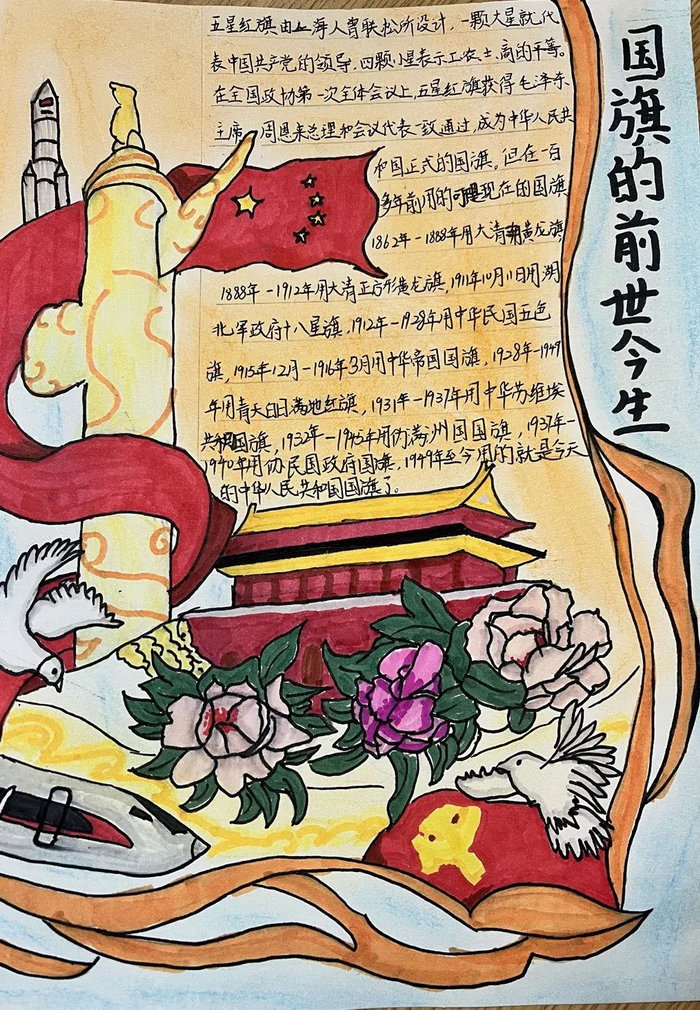 国旗的前世今生
五星红旗由上海人曾联松所设计，一颗大星就代
表中国共产党的领导，四颗小星表示工农士、商的平等。
在全国政协第一次全体会议上，五星红旗获得毛泽东
主席、周恩来总理和会议代表一致通过，成为中华人民共
和国正式的国旗。但在一百
多年前用的可是现在的国旗
1862年-1888年用大清黄龙旗
1888年-1912年用大清正方形黄龙旗，1911年10月11日用湖
北军政府十八星旗，1912年-1928年用中华民国五色
旗，1915年12月-1916年3月用中华帝国国旗，1928年-1949
年用青天白日满地红旗，1931年-1937年用中华苏维埃
共和国国旗，1932年-1945年用伪满州国国旗，1937年-
1940年用伪民国政府国旗，1949年至今用的就是今天
的中华人民共和国国旗了。